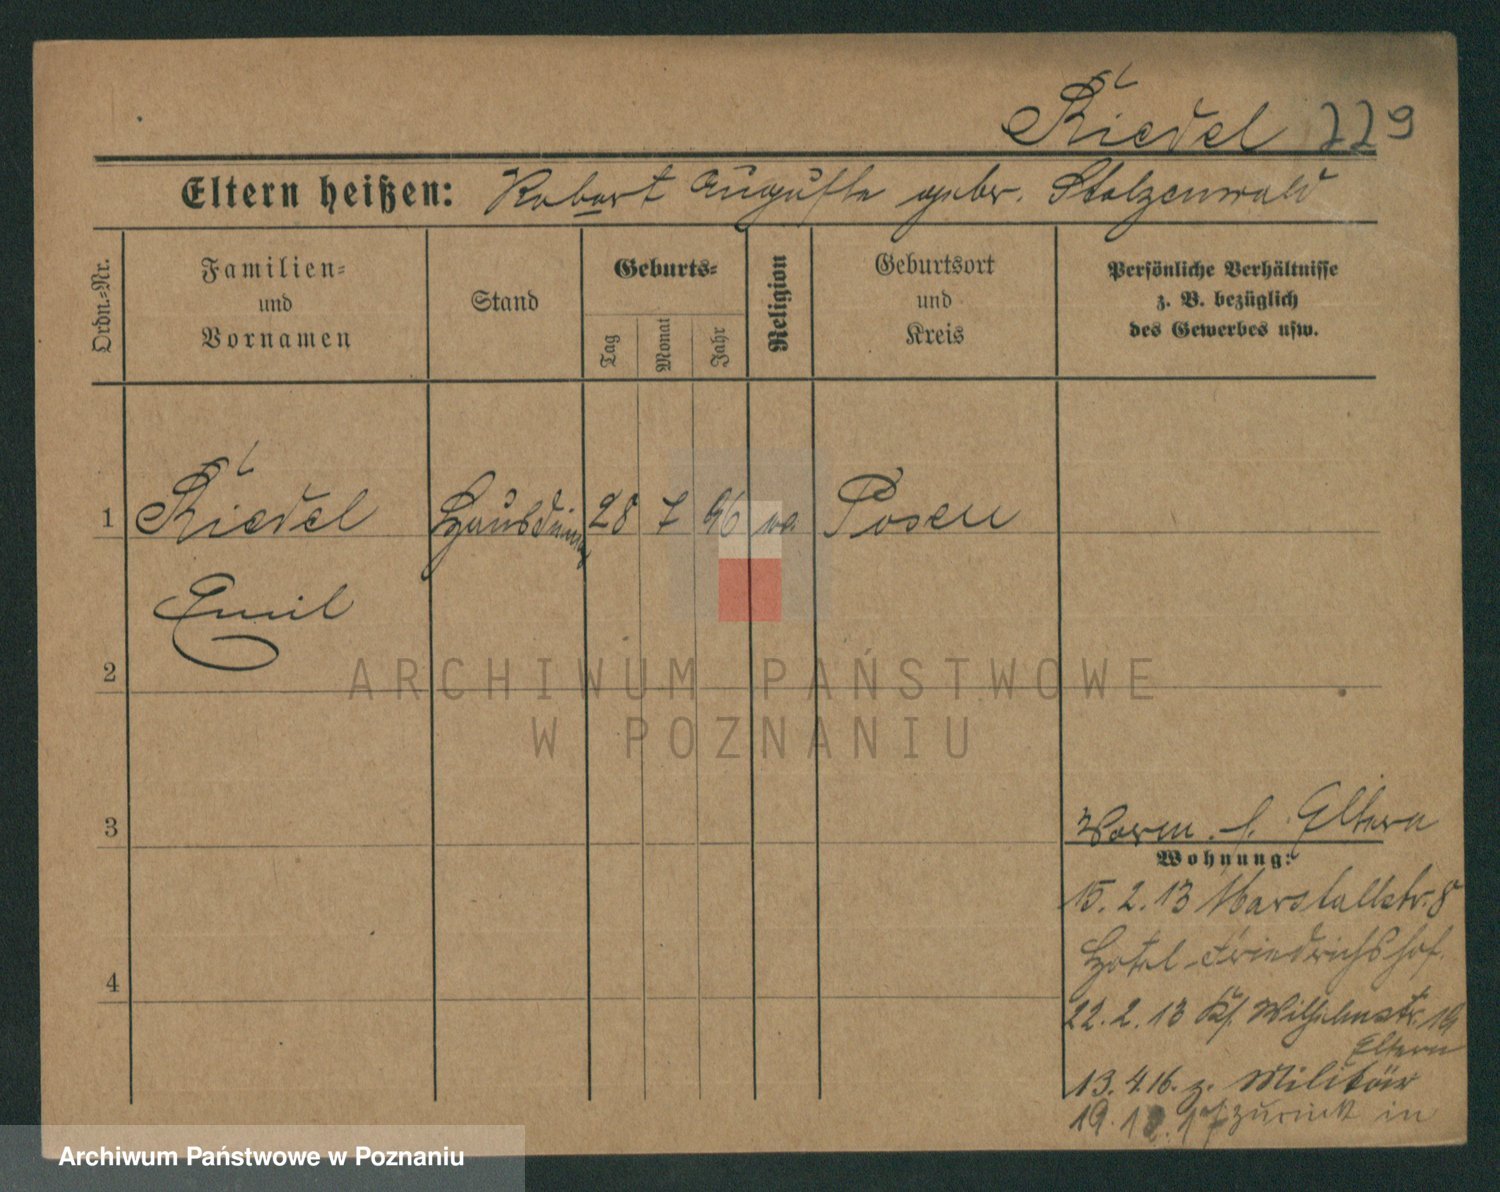 Riedel 229
Eltern heißen: Robert Auguste gebr. Stolzenwald
Ordn.=Nr.
Familien=
und
Vornamen
Stand
Geburts=
Tag
Monat
Jahr
Religion
Geburtsort
und
Kreis
Persönliche Verhältnisse
z. B. bezüglich
des Gewerbes usw.
1 Riedel Hausdiener 28 7 96 Posen
Emil
2
3
Eltern
Wohnung:
15. 2. 13 Marstallstr. 8
Hotel Friedrichshof.
22. 2. 13 Wilhelmstr. 19
Eltern
13. 4. 16. z. Militär
zurück in
4
ARCHIWUM PAŃSTWOWE
W POZNANIU
Archiwum Państwowe w Poznaniu